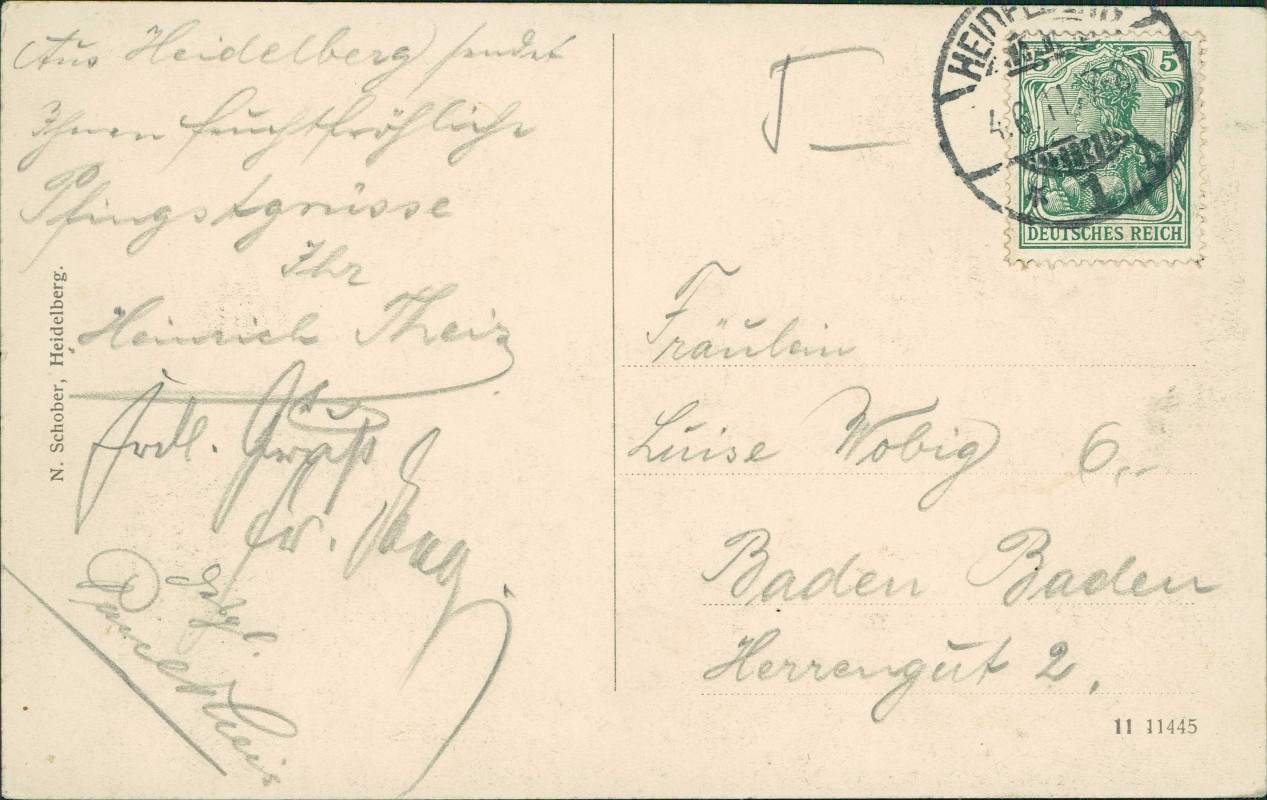 Aus Heidelberg sendet
Ihnen feuchtfröhliche
Pfingstgrüsse
Ihr
Heinrich Theis
Frdl. Gruß
Fr.
Dsgl.
Theis
N. Schober, Heidelberg.
HEIDELBERG
4.6.11
* 1
5 5
DEUTSCHES REICH
Fräulein
Luise Wobig 6.-
Baden Baden
Herrengut 2.
11 11445